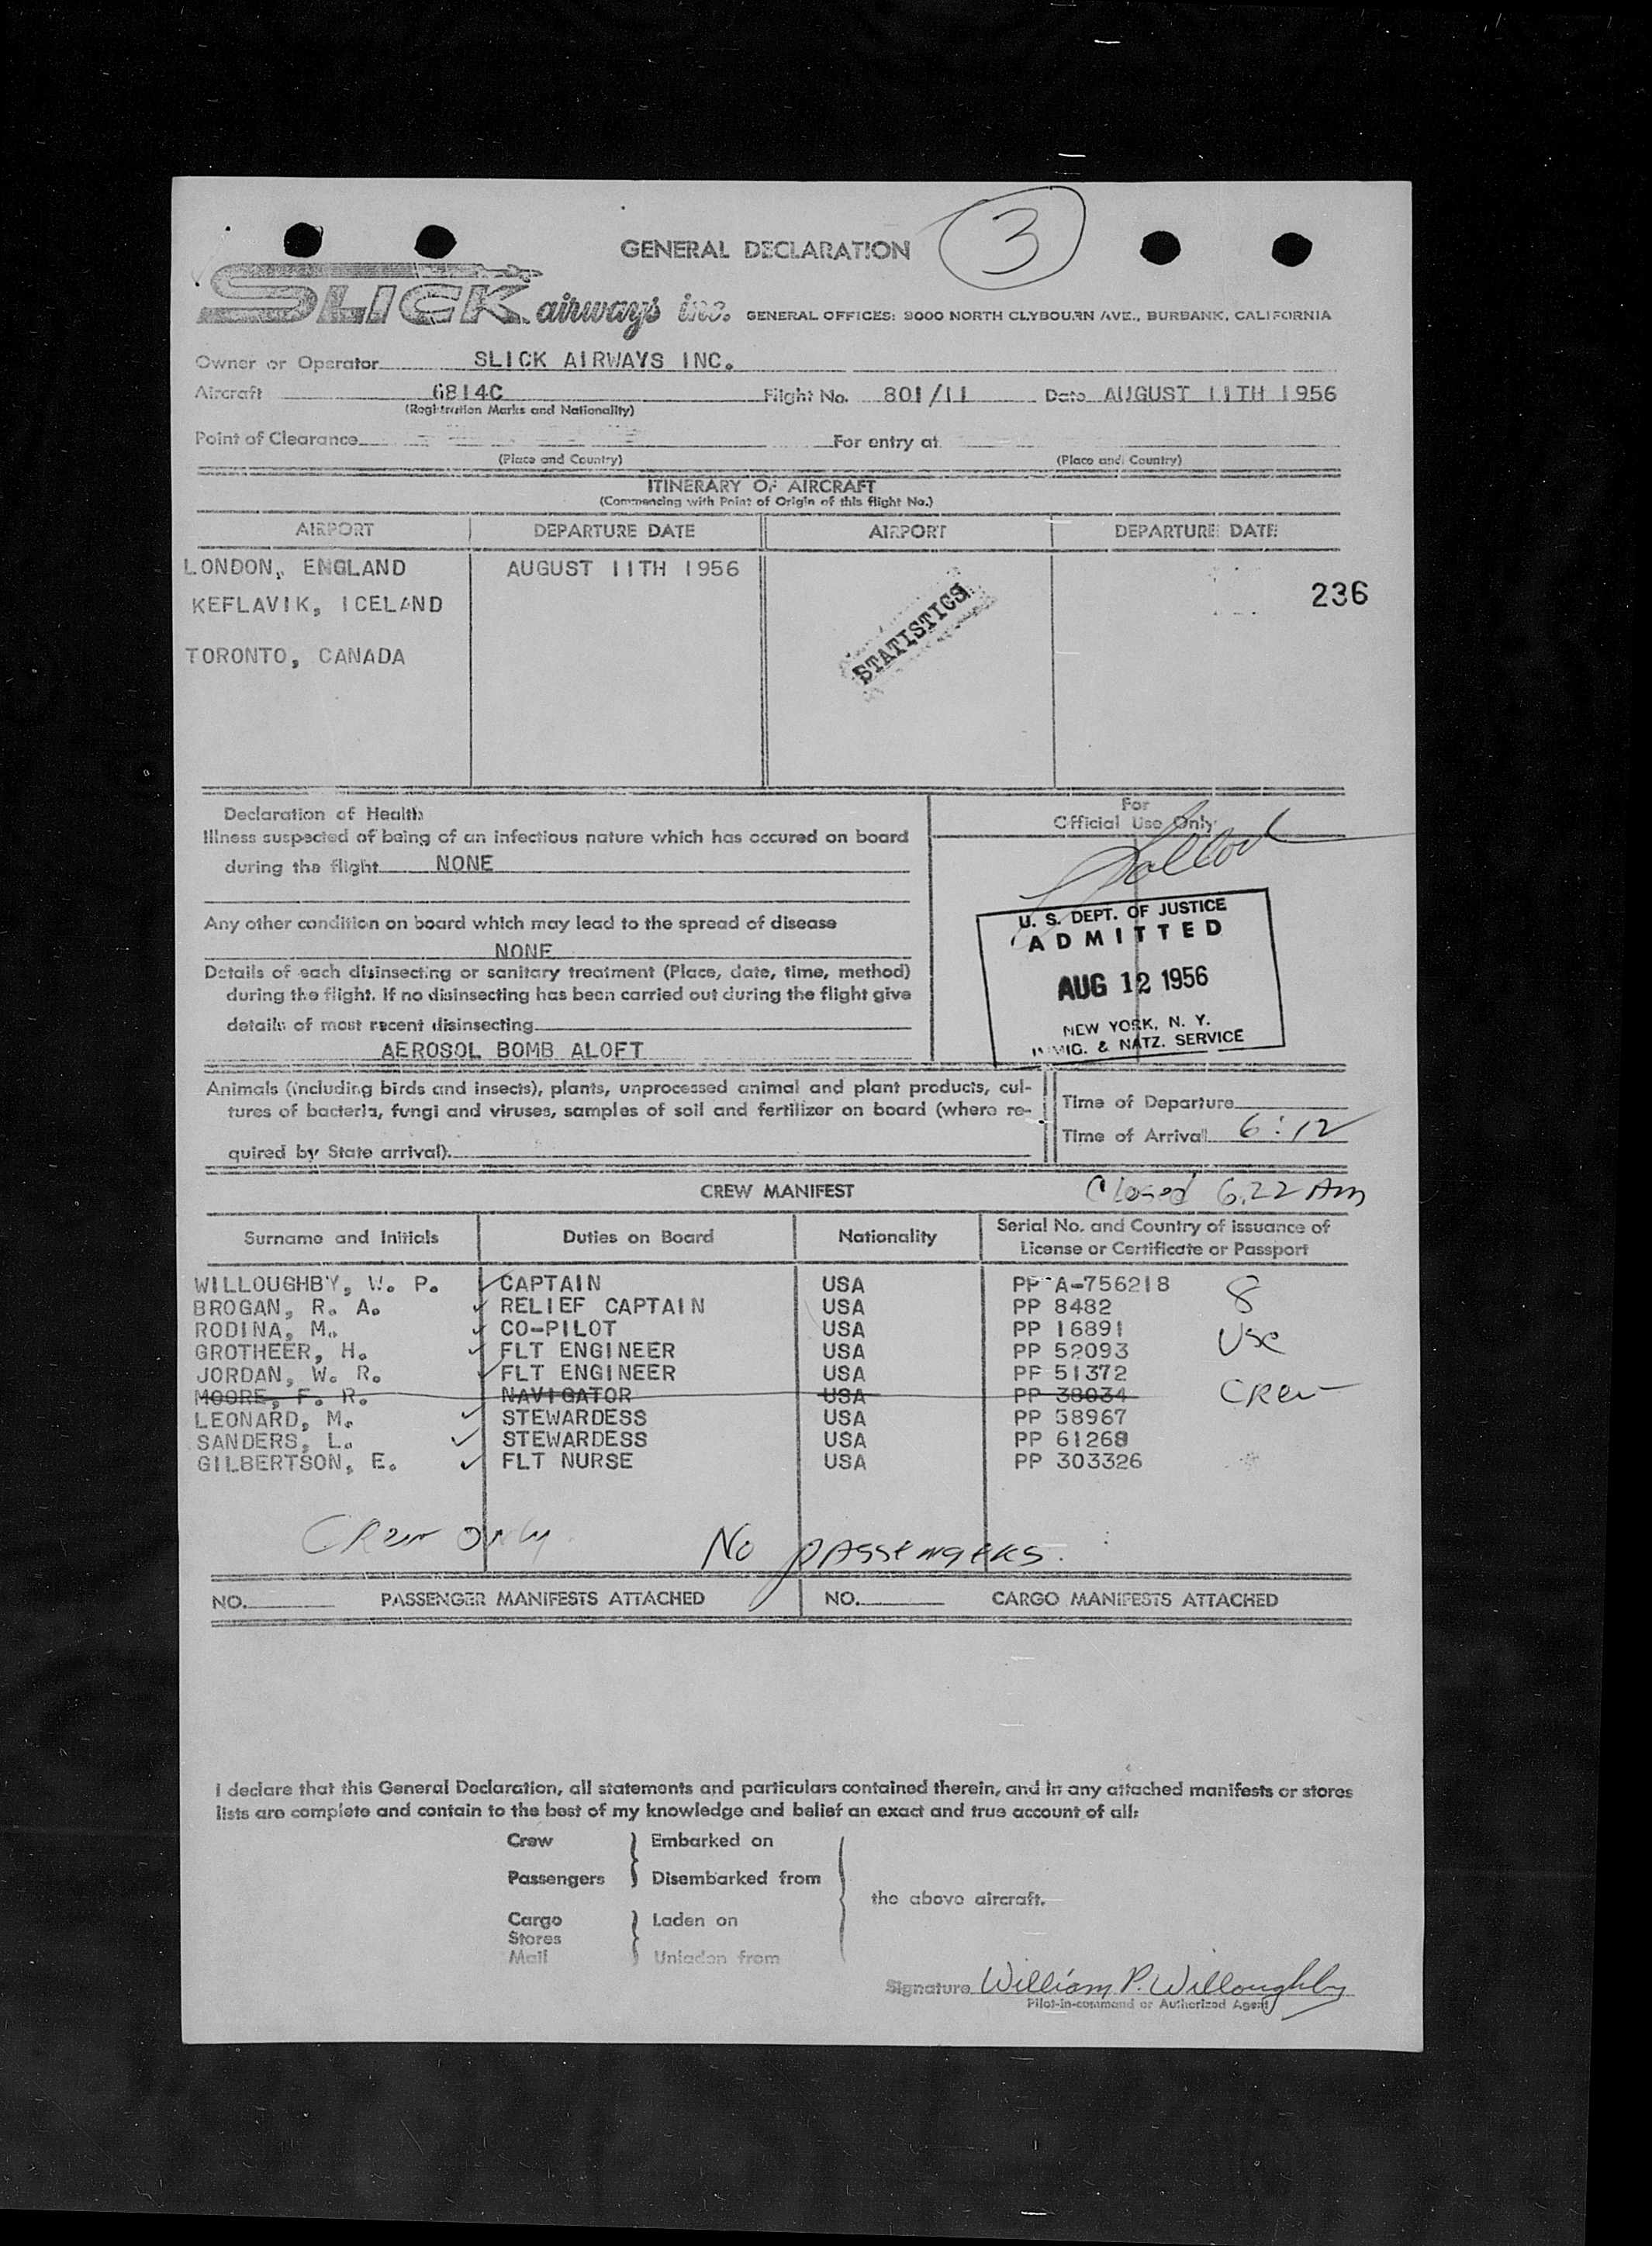 3
GENERAL DECLARATION
SLICK airways inc. GENERAL OFFICES: 3000 NORTH CLYBOURN AVE., BURBANK, CALIFORNIA
Owner or Operator SLICK AIRWAYS INC.
Aircraft 6814C Flight No. 801/11 Date AUGUST 11TH 1956
(Registration Marks and Nationality)
Point of Clearance For entry at
(Place and Country) (Place and Country)
ITINERARY OF AIRCRAFT
(Commencing with Point of Origin of this flight No.)
AIRPORT DEPARTURE DATE AIRPORT DEPARTURE DATE
LONDON, ENGLAND AUGUST 11TH 1956
KEFLAVIK, ICELAND 236
STATISTICS
TORONTO, CANADA
Declaration of Health
Illness suspected of being of an infectious nature which has occured on board
during the flight NONE
For
Official Use Only
Any other condition on board which may lead to the spread of disease
NONE
Details of each disinsecting or sanitary treatment (Place, date, time, method)
during the flight. If no disinsecting has been carried out during the flight give
details of most recent disinsecting
AEROSOL BOMB ALOFT
U. S. DEPT. OF JUSTICE
ADMITTED
AUG 12 1956
NEW YORK, N. Y.
IMMIG. & NATZ. SERVICE
Animals (including birds and insects), plants, unprocessed animal and plant products, cul-
tures of bacteria, fungi and viruses, samples of soil and fertilizer on board (where re-
quired by State arrival).
Time of Departure
Time of Arrival 6:12
CREW MANIFEST Closed 6.22 Am
Surname and Initials Duties on Board Nationality Serial No. and Country of issuance of
License or Certificate or Passport
WILLOUGHBY, W. P. CAPTAIN USA PP A-756218 8
BROGAN, R. A. RELIEF CAPTAIN USA PP 8482
RODINA, M. CO-PILOT USA PP 16891 USC
GROTHEER, H. FLT ENGINEER USA PP 52093
JORDAN, W. R. FLT ENGINEER USA PP 51372
MOORE, F. R. NAVIGATOR USA PP 38034 CRew
LEONARD, M. STEWARDESS USA PP 58967
SANDERS, L. STEWARDESS USA PP 61268
GILBERTSON, E. FLT NURSE USA PP 303326
CRew only No passengers.
NO. PASSENGER MANIFESTS ATTACHED NO. CARGO MANIFESTS ATTACHED
I declare that this General Declaration, all statements and particulars contained therein, and in any attached manifests or stores
lists are complete and contain to the best of my knowledge and belief an exact and true account of all:
Crew Embarked on
Passengers Disembarked from
the above aircraft.
Cargo Laden on
Stores
Mail Unladen from
Signature William P. Willoughby
Pilot-in-command or Authorized Agent